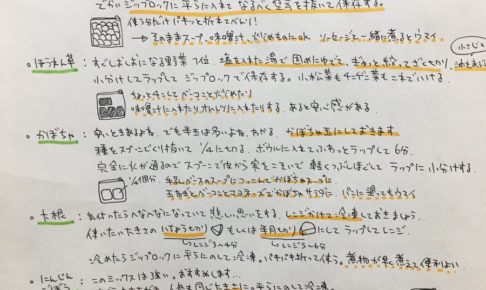 でかいジップロックに平らに入れて なるべく空気を抜いて保存する。
使う分だけパキッと折れてべんり!
→そのままスープ、味噌汁、炒めものにok ソーセージと一緒に煮るとウマイ
ほうれん草 : すぐしおしおになる野菜1位、塩を入れた湯で固めにゆでて、ぎゅっと絞って、ざくざく切り、
小分けしてラップしてジップロックで保存する。小松菜もチンゲン菜もこれでいける。
ちょっとチンしてベーコンと炒めたり
味噌汁に入れたりオムレツに入れたりする、あると安心感がある
かぼちゃ : 安いときあるよね、でも半玉は多いよね、わかる、かぼちゃ玉にしておきます
種をスプーンでくり抜いて 1/4に切る、ボウルに入れてふわっとラップして6分、
完全に火が通るのでスプーンで皮から実をこそいで 軽くつぶしほぐして ラップに小分けする。
1/4個分
玉ねぎとベーコンとマヨネーズでかぼちゃサラダに、パンに塗ってもウマイ
大根 : 気付いたらへなへなになっていて悲しい思いをする、レンジかけて冷凍しておきましょう
使いたい大きさの いちょう切り もしくは 半月切り にして ラップしてレンジ.
レンジ3~4分 レンジ5~6分
冷めたらジップロックに平らにのして冷凍。パキパキ折って使う。煮物が早く煮えて便利よい
にんじん : このミックスは強い。おすすめします…
ごぼう